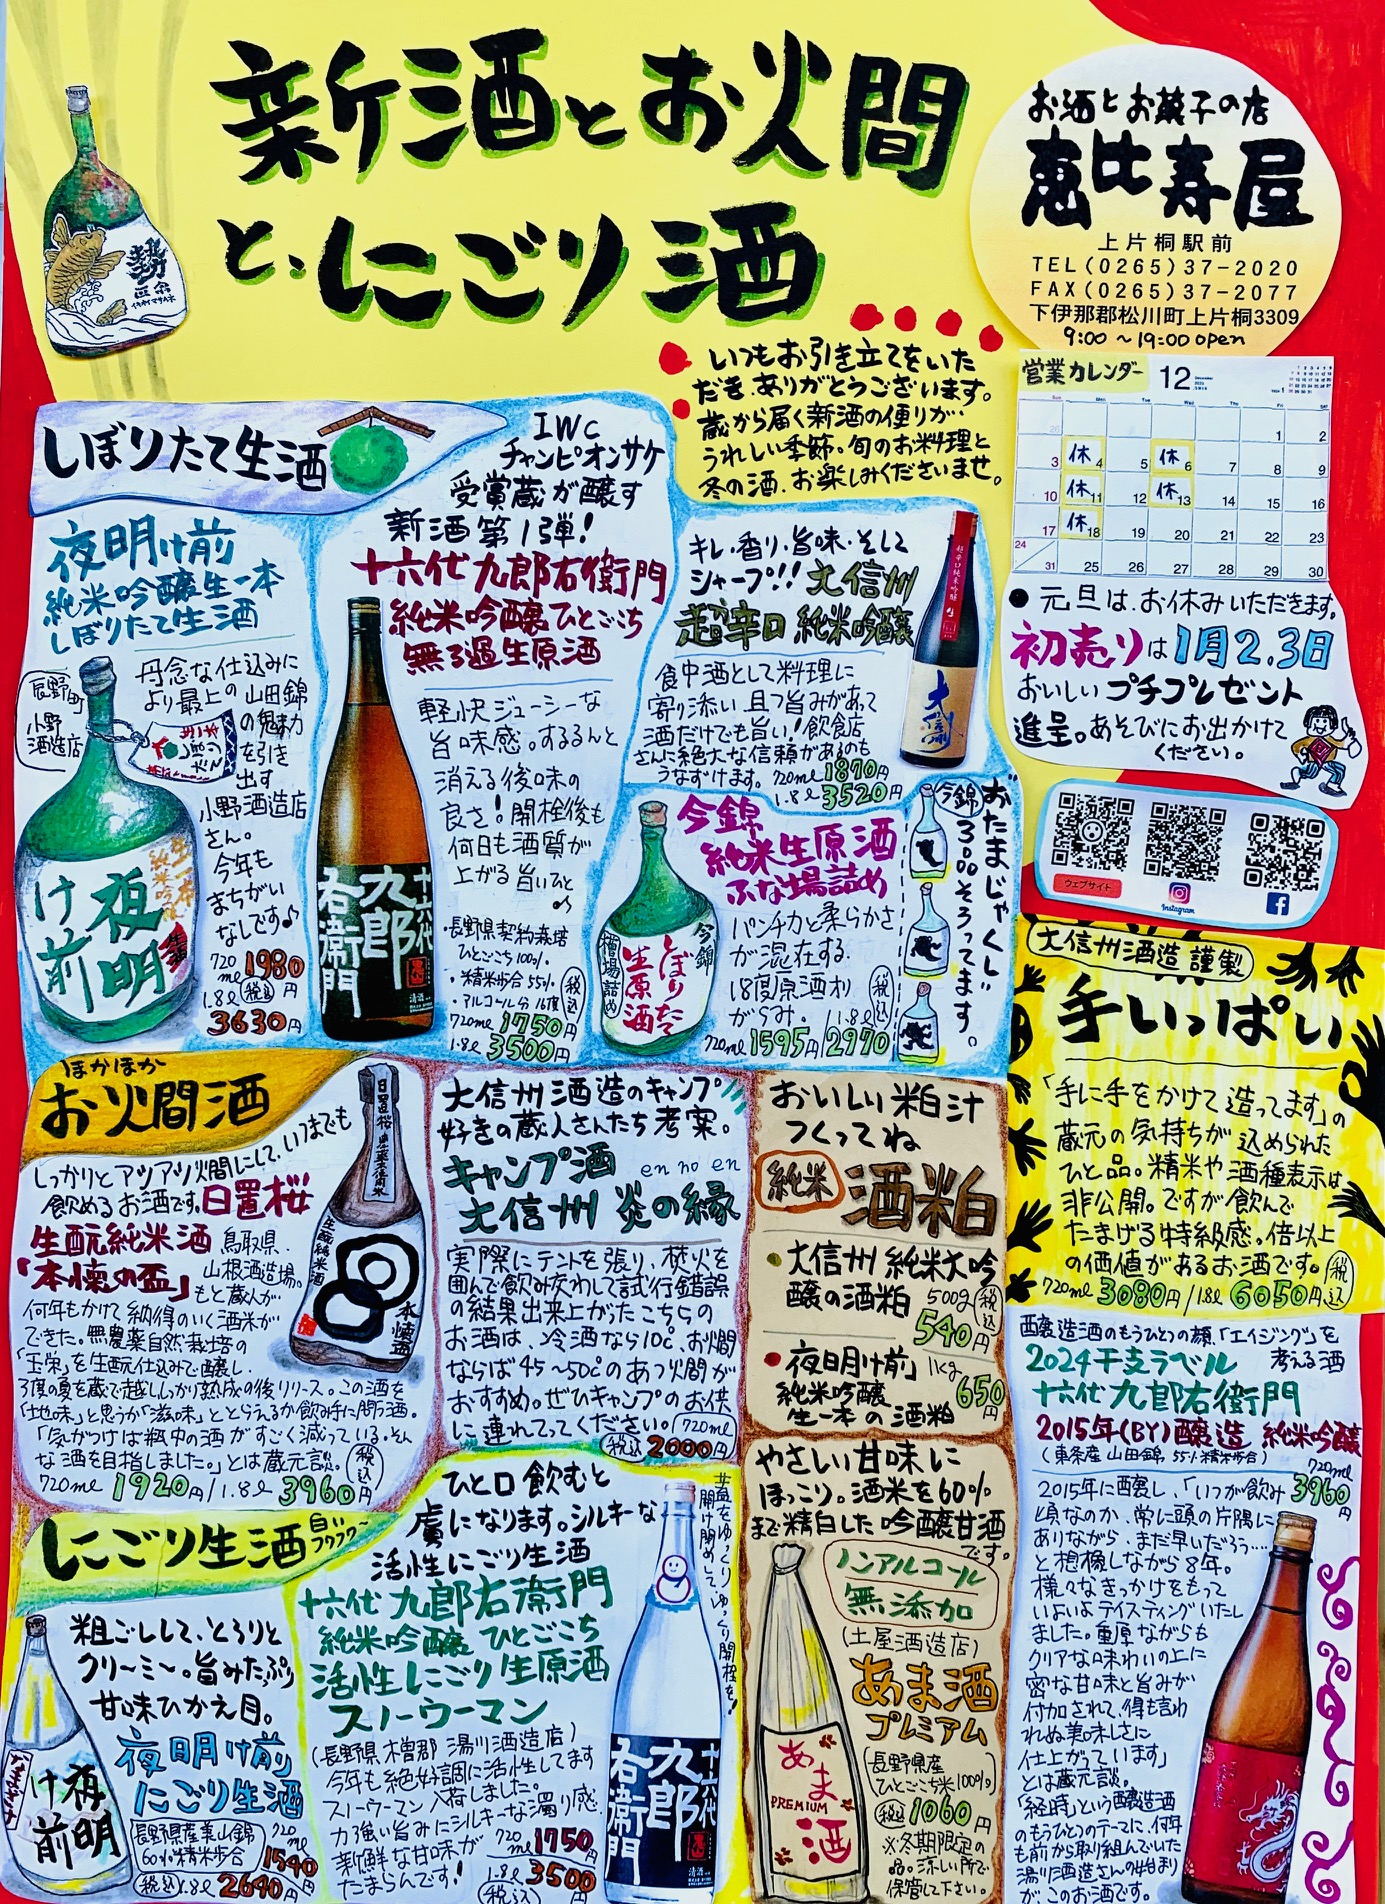 新酒とお火間
と、にごり酒
勢
正宗
イキオイマサムネ
お酒とお菓子の店
恵比寿屋
上片桐駅前
TEL(0265)37-2020
FAX(0265)37-2077
下伊那郡松川町上片桐3309
9:00〜19:00 open
いつもお引き立てをいた
だき、ありがとうございます。
蔵から届く新酒の便りが…
うれしい季節。旬のお料理と
冬の酒、お楽しみくださいませ。
営業カレンダー 12
Sun Mon Tue Wed Thu Fri Sat
26 1 2
3 休4 5 休6 7 8 9
10 休11 12 休13 14 15 16
17 休18 19 20 21 22 23
24/31 25 26 27 28 29 30
●元旦は、お休みいただきます。
初売りは1月2.3日
おいしいプチプレゼント
進呈。あそびにお出かけて
ください。
ウェブサイト
Instagram
しぼりたて生酒
夜明け前
純米吟醸生一本
しぼりたて生酒
長野
町
小野
酒造店
丹念な仕込みに
より最上の山田錦
の魅力
を引き
出す
小野酒造店
さん。
今年も
まちがい
なしです♪
720ml 1980円
1.8l 税込
3630円
夜明け前
生一本
純米吟醸
生酒
IWC
チャンピオンサケ
受賞蔵が醸す
新酒第1弾!
十六代九郎右衛門
純米吟醸ひとごこち
無ろ過生原酒
軽快ジューシーな
旨味感。するるんと
消える後味の
良さ!開栓後も
何日も酒質が
上がる旨いひと
♪
・長野県契約栽培
ひとごこち100%
・精米歩合55%
・アルコール分16度
税込
720ml 1750円
1.8l 3500円
十六代
九郎
右衛門
清酒
キレ・香り・旨味・そして
シャープ!!大信州
超辛口純米吟醸
食中酒として料理に
寄り添い、且つ旨みがあって
酒だけでも旨い!飲食店
さんに絶大な信頼があるのも
うなずけます。720ml 1870円
1.8l 3520円
超辛口純米吟醸 生
大信州
今錦
純米生原酒
ふな場詰め
パンチ力と柔らかさ
が混在する
18度原酒オリ
がらみ。
税込
720ml 1595円/1.8l 2970円
今錦
しぼりたて
生原酒
槽場詰め
今錦
おたまじゃくし
300そろってます。
ほかほか
お火間酒
しっかりとアツアツ火間にして、いつまでも
飲めるお酒です。日置桜
生酛純米酒 鳥取県・
「本懐の盃」 山根酒造場。
もと蔵人が
何年もかけて納得のいく酒米が
できた。無農薬自然栽培の
「玉栄」を生酛仕込みで醸し、
3度の夏を蔵で越ししっかり熟成の後リリース。この酒を
「地味」と思うか「滋味」ととらえるか飲み手に問う酒。
「気がつけば瓶中の酒がすごく減っている・そん
な酒を目指しました。」とは蔵元談。
税込
720ml 1920円/1.8l 3960円
日置桜
生酛純米酒
本懐の盃
大信州酒造のキャンプ
好きの蔵人さんたち考案。
キャンプ酒 en no en
大信州 炎の縁
実際にテントを張り、焚火を
囲んで飲み交わして試行錯誤
の結果出来上がったこちらの
お酒は、冷酒なら10℃、お火間
ならば45〜50℃のあつ火間が
おすすめ。ぜひキャンプのお供
に連れてってください。720ml
税込 2000円
おいしい粕汁
つくってね
純米 酒粕
●大信州純米大吟
醸の酒粕 500g 税込
540円
●「夜明け前」1kg
純米吟醸 650円
生一本の酒粕
大信州酒造謹製
手いっぱい
「手に手をかけて造ってます」の
蔵元の気持ちが込められた
ひと品。精米や酒種表示は
非公開。ですが飲んで
たまげる特級感。倍以上
の価値があるお酒です。税込
720ml 3080円/1.8l 6050円
醸造酒のもうひとつの顔、「エイジング」を
考える酒
2024干支ラベル
十六代九郎右衛門
2015年(BY)醸造 純米吟醸
(東条産山田錦55%精米歩合)
720ml
3960円
2015年に醸し、「いつが飲み
頃なのか、常に頭の片隅に
ありながら、まだ早いだろう…
と想像しながら8年。
様々なきっかけをもって
いよいよテイスティングいたし
ました。重厚ながらも
クリアな味わいの上に
密な甘味と旨みが
付加されて、得も言わ
れぬ美味しさに
仕上がっています」
とは蔵元談。
「経時」という醸造酒
のもうひとつのテーマに、何年
も前から取り組んでいた
湯川酒造さんの始まり
がこのお酒です。
にごり生酒 白い
フワフワ〜
粗ごしして、とろりと
クリ〜ミ〜。旨みたっぷり
甘味ひかえ目。
夜明け前
にごり生酒
長野県産美山錦
60%精米歩合
720ml
1540円
税込 1.8l 2640円
夜明け前
なまざけ
ひと口飲むと
虜になります。シルキーな
活性にごり生酒
十六代九郎右衛門
純米吟醸 ひとごこち
活性にごり生原酒
スノーウーマン
(長野県木曽郡 湯川酒造店)
今年も絶好調に活性してます
スノーウーマン入荷しました。
力強い旨みにシルキーな濁り感、
新鮮な甘味が
たまらんです!
720ml 1750円
1.8l 3500円
(税込)
蓋をゆっくりゆっくり開栓を!
開け閉めして
十六代
九郎
右衛門
やさしい甘味に
ほっこり。酒米を60%
まで精白した吟醸甘酒
です。
ノンアルコール
無添加
(土屋酒造店)
あま酒
プレミアム
(長野県産
ひとごこち米100%)
税込 1060円
※冬期限定の
品。涼しい所で
保管して下さい。
あま酒
PREMIUM